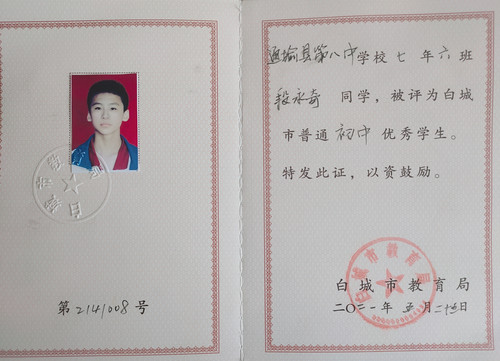 第2141008号
通榆县第八中学校七年六班
段永奇 同学,被评为白城
市普通初中优秀学生。
特发此证,以资鼓励。
白城市教育局
二〇二一年五月二十五日
白城市教育局